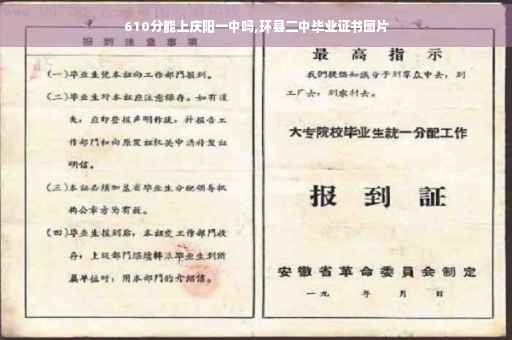 610分能上庆阳一中吗,环县二中毕业证书图片
报到注意事项
(一)毕业生凭本证向工作部门报到。
(二)毕业生对本证应注意保存。如有遗
失,应即登报声明作废,并报告工
作部门和向原发证机关申请补发证
明信。
(三)本证必须加盖省毕业生分配领导机
构公章方为有效。
(四)毕业生报到后,本证交工作部门收
存;上级部门
毕业生到所
属单位时,用本部门的介绍信。
最高指示
我们提倡知识分子到群众中去,到
工厂去,到农村去。
大专院校毕业生統一分配工作
报到証
安徽省革命委員会制定
一九 年 月 日